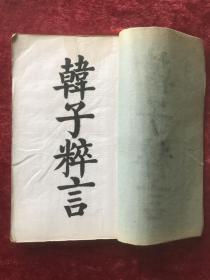 韓子粹言